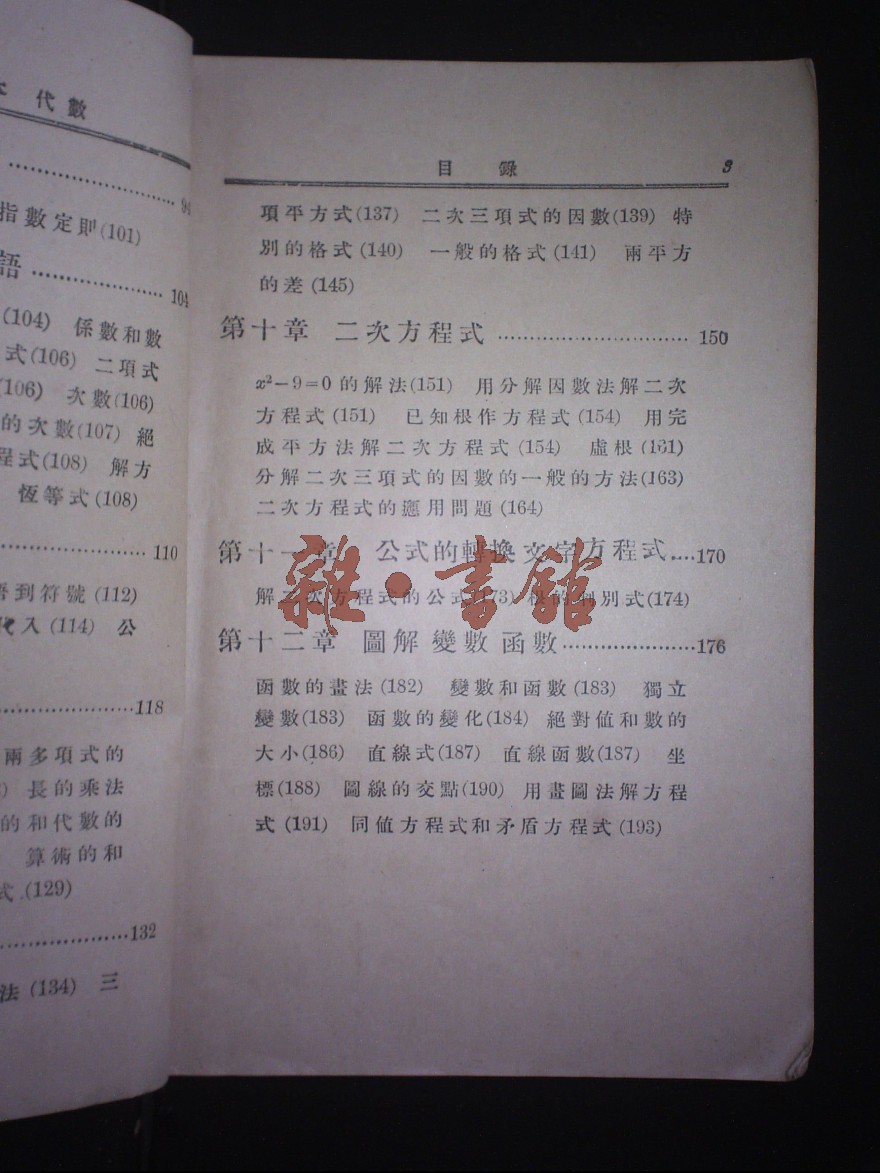 代數
94
指數定則(101)
語 104
(104) 係數和數
式(106) 二項式
(106) 次數(106)
的次數(107) 絕
程式(108) 解方
恆等式(108)
110
到符號(112)
代入(114) 公
118
兩多項式的
長的乘法
的和代數的
算術的和
式(129)
132
法(134) 三
目錄 3
項平方式(137) 二次三項式的因數(139) 特
別的格式(140) 一般的格式(141) 兩平方
的差(145)
第十章 二次方程式 150
x²−9=0的解法(151) 用分解因數法解二次
方程式(151) 已知根作方程式(154) 用完
成平方法解二次方程式(154) 虛根(161)
分解二次三項式的因數的一般的方法(163)
二次方程式的應用問題(164)
第十一章 公式的轉換文字方程式 170
解二次方程式的公式(173) 根的判別式(174)
第十二章 圖解 變數 函數 176
函數的畫法(182) 變數和函數(183) 獨立
變數(183) 函數的變化(184) 絕對值和數的
大小(186) 直線式(187) 直線函數(187) 坐
標(188) 圖線的交點(190) 用畫圖法解方程
式(191) 同值方程式和矛盾方程式(193)
雜·書館